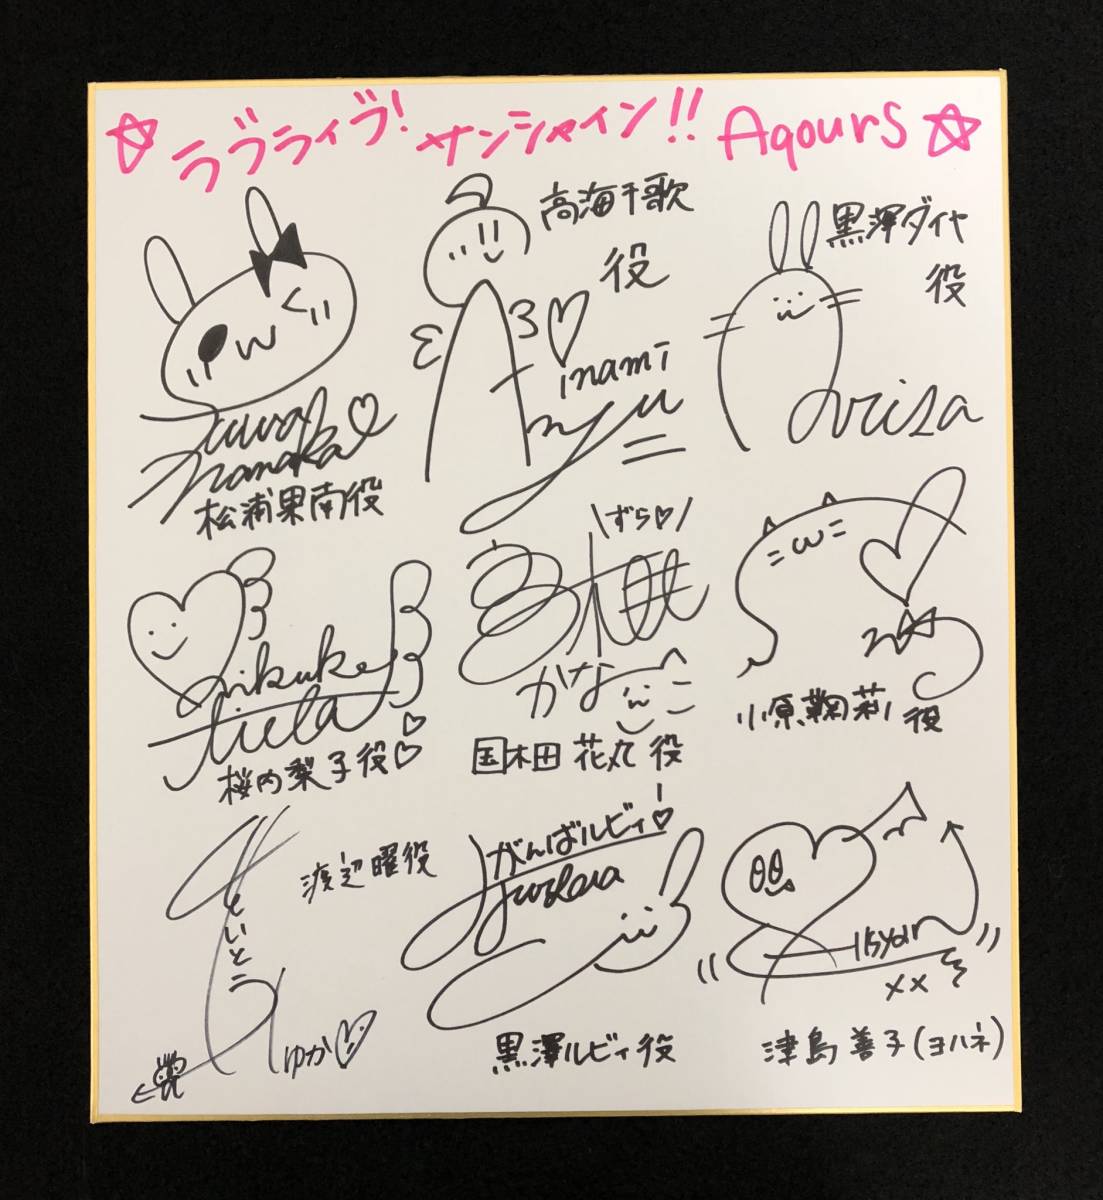 ☆ラブライブ！サンシャイン!! Aqours☆
suwa
nanaka♡
松浦果南役
高海千歌
役
inami
anju
黒澤ダイヤ
役
arisa
aikuka
riela
桜内梨子役♡
\ずら♡/
高槻
かな
国木田 花丸 役
小原鞠莉 役
さいとう
ゆか♡
渡辺曜役
がんばルビィ!♡
furihata
黒澤ルビィ役
xx
津島善子(ヨハネ)